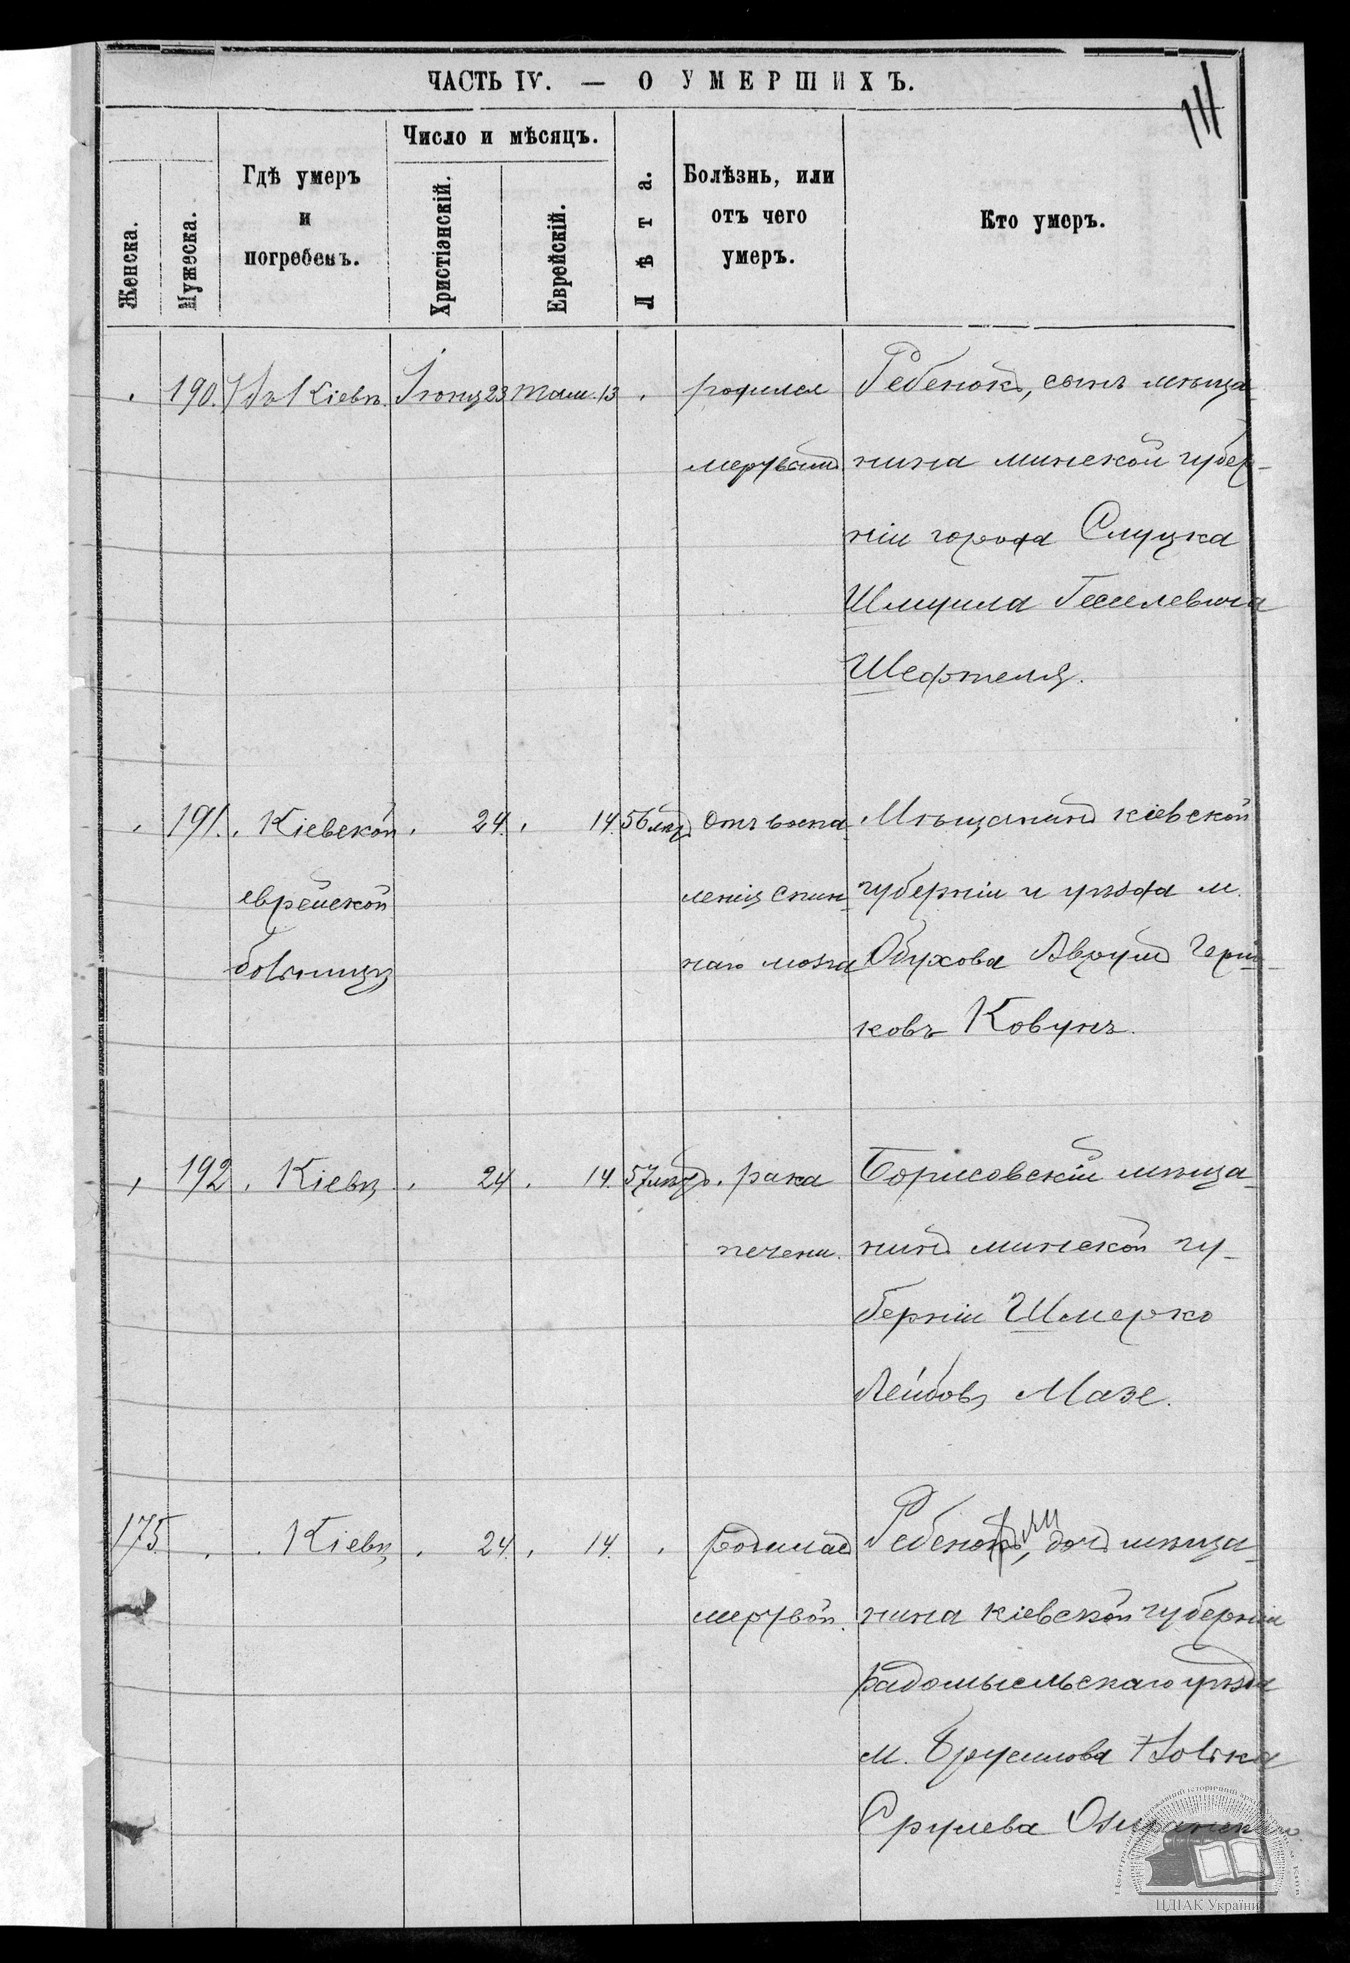 ЧАСТЬ IV. — О УМЕРШИХЪ.
111
Женска.
Мужеска.
Гдѣ умеръ
и
погребенъ.
Число и мѣсяцъ.
Христіанскій.
Еврейскій.
Лѣта.
Болѣзнь, или
отъ чего
умеръ.
Кто умеръ.
190. Въ Кіевѣ. Іюня 23 Там. 13 родился Ребенокъ, сынъ мѣща-
мертвымъ нина минской губер-
ніи города Слуцка
Шмуила Геселевича
Шефтеля.
191. Кіевской 24. 14. 56 лѣтъ Отъ воспа- Мѣщанинъ кіевской
еврейской ленія спин- губерніи и уѣзда м.
больницѣ наго мозга Обухова Аврумъ Герш-
ковъ Ковунъ.
192. Кіевѣ 24. 14. 57 лѣтъ. рака Борисовскій мѣща-
печени. нинъ минской гу-
берніи Шмерко
Лейбовъ Мазе.
175. Кіевѣ 24. 14. родилась Ребенокъ, дочь мѣща-
мертвой. нина кіевской губерніи
Радомысльскаго уѣзда
м. Брусилова Волька
Срулева
ЦДІАК України